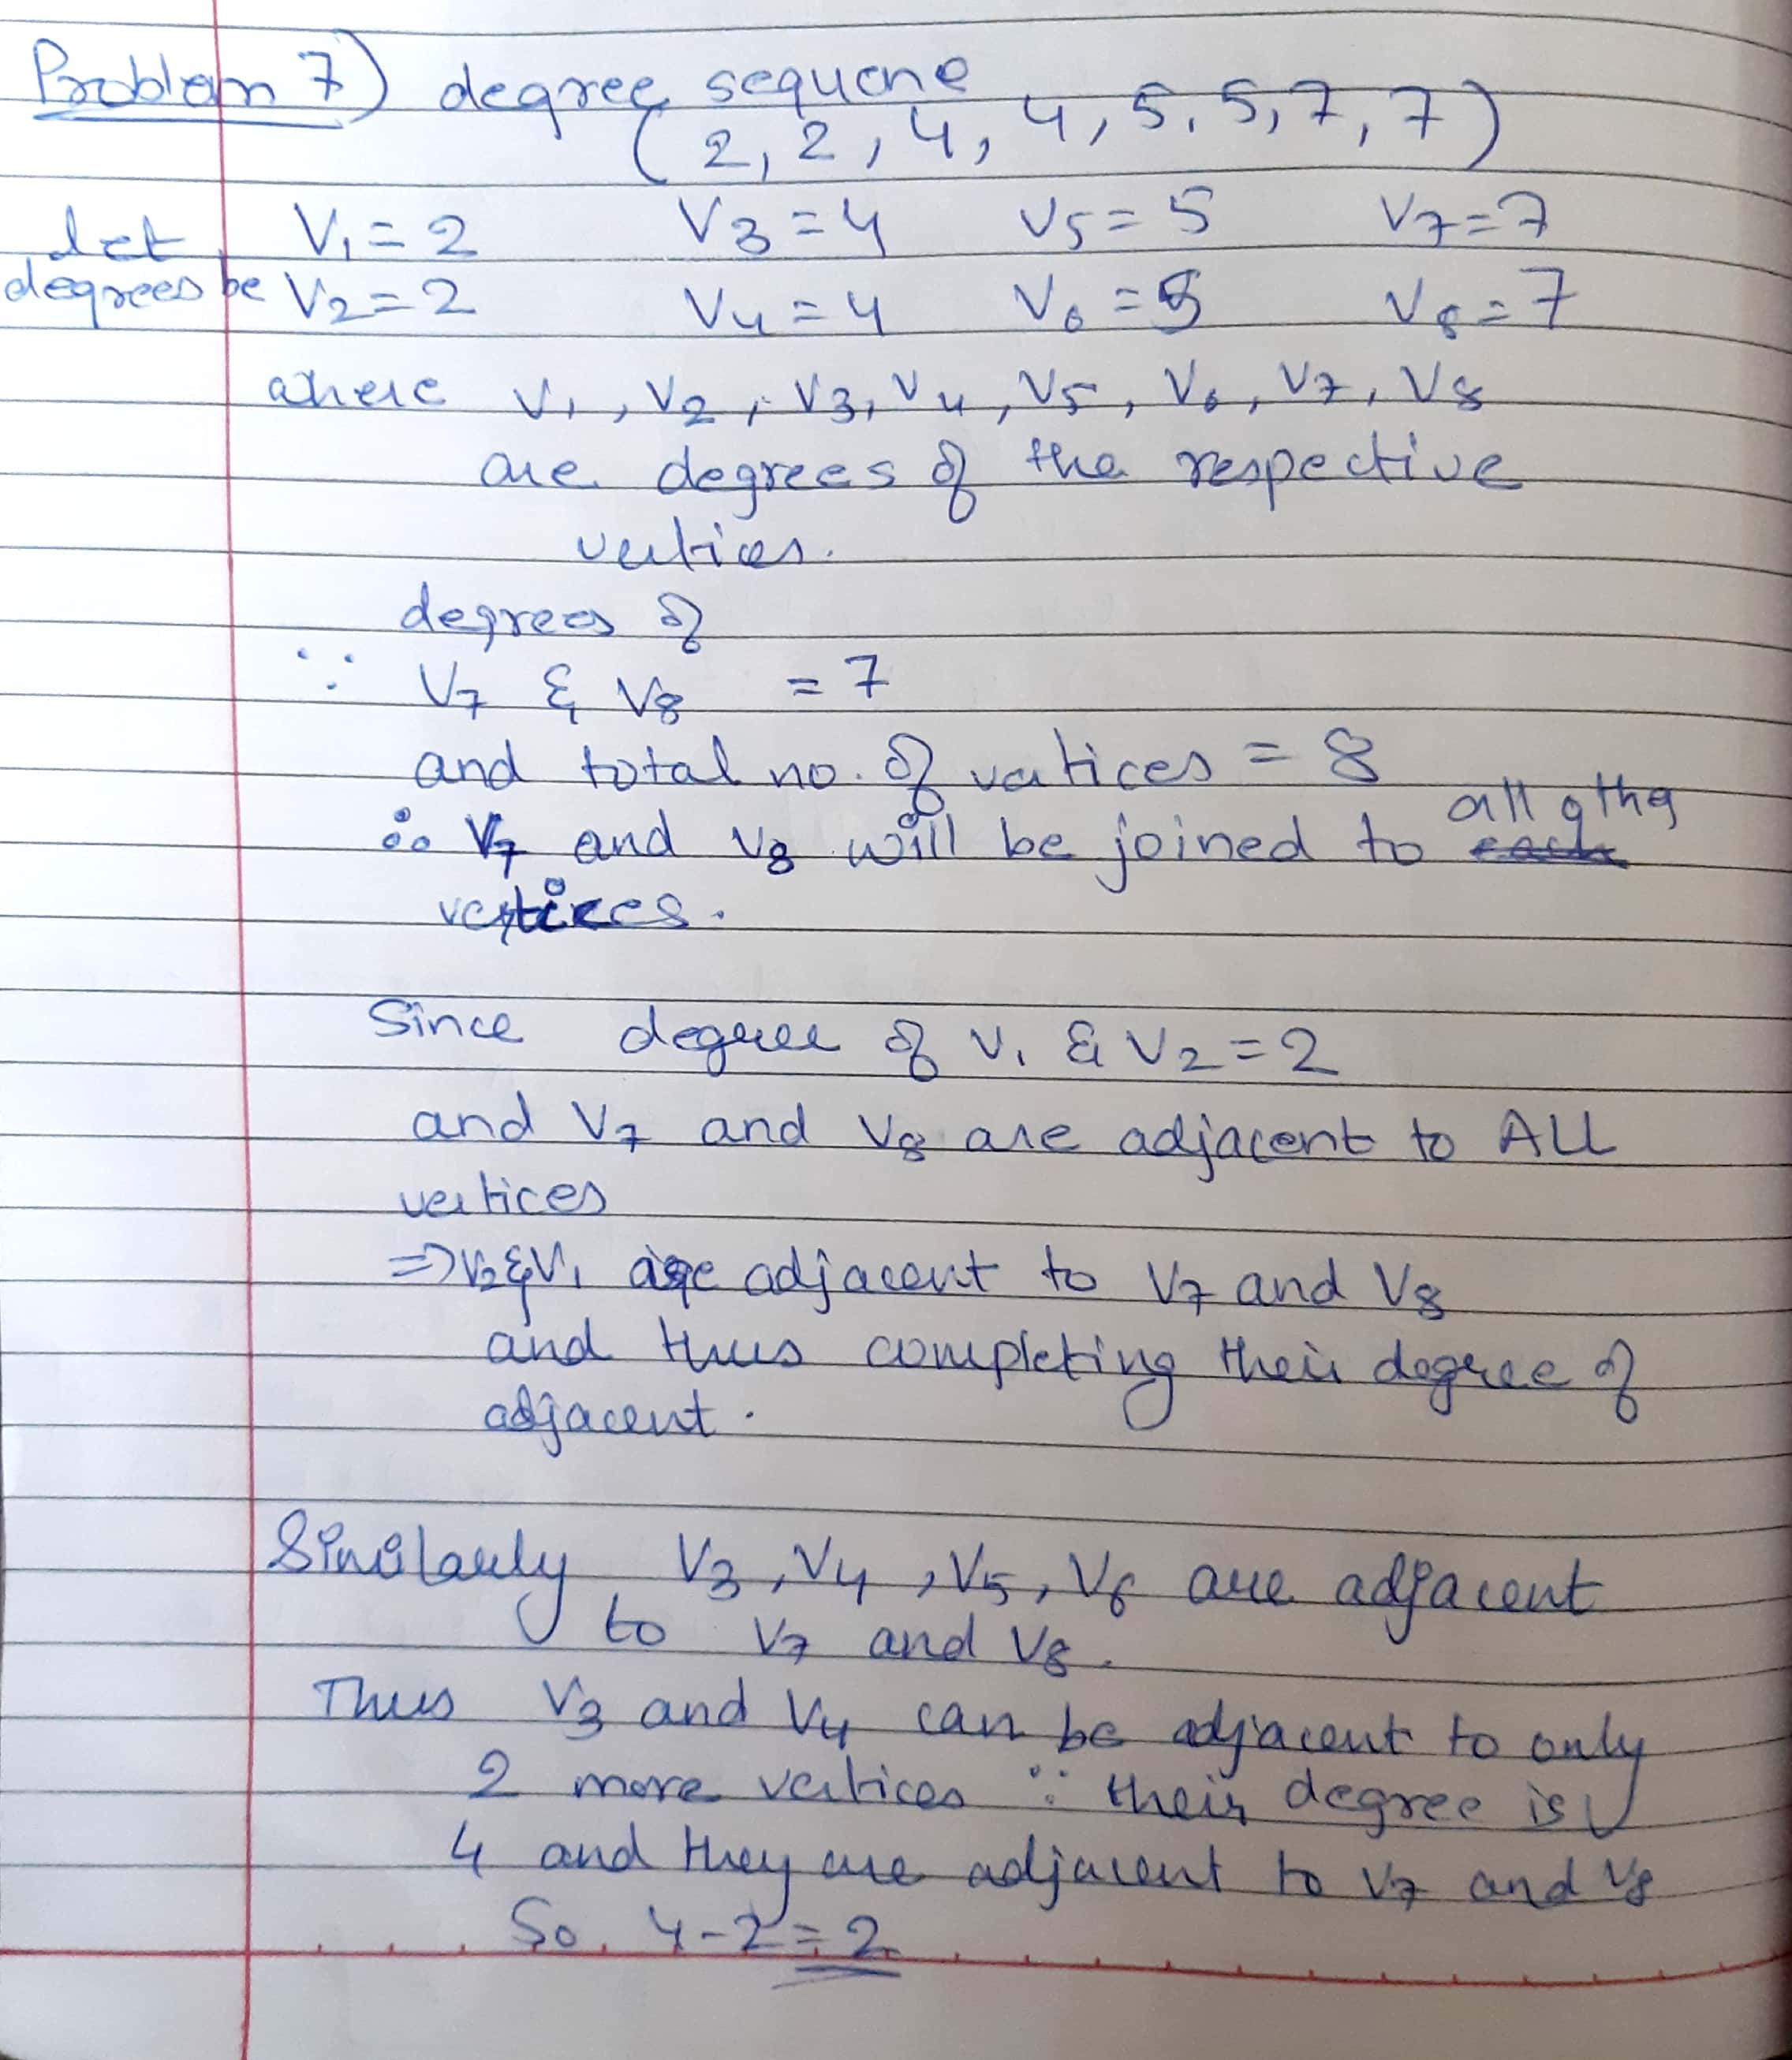 Problem 7) degree sequene
(2, 2, 4, 4, 5, 5, 7, 7)
let V₁ = 2 V₃ = 4 V₅ = 5 V₇ = 7
degrees be V₂ = 2 V₄ = 4 V₆ = 5 V₈ = 7
where V₁, V₂, V₃, V₄, V₅, V₆, V₇, V₈
are degrees of the respective
vertices.
degrees of
∵ V₇ & V₈ = 7
and total no. of vertices = 8
∴ V₇ and V₈ will be joined to all other
vertices.
Since degree of V₁ & V₂ = 2
and V₇ and V₈ are adjacent to ALL
vertices
⇒ V₂ & V₁ are adjacent to V₇ and V₈
and thus completing their degree of
adjacent.
Similarly V₃, V₄, V₅, V₆ are adjacent
to V₇ and V₈.
Thus V₃ and V₄ can be adjacent to only
2 more vertices ∵ their degree is
4 and they are adjacent to V₇ and V₈
So, 4-2 = 2